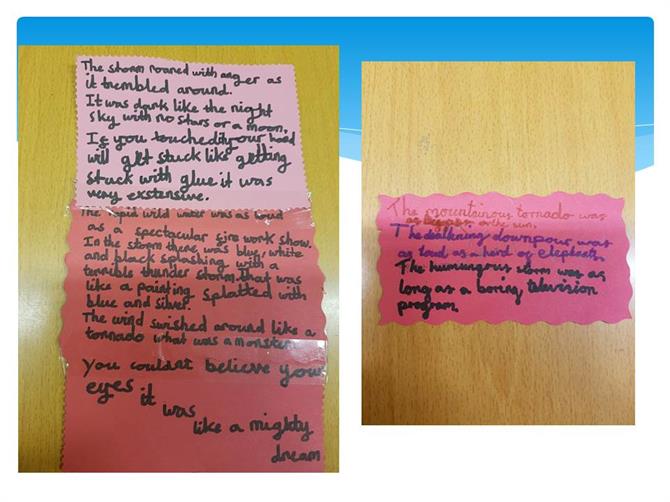 The storm roared with anger as
it trembled around.
It was dark like the night
sky with no stars or a moon.
If you touched it your hand
will get stuck like getting
stuck with glue it was
very extensive.
The rapid wild water was as loud
as a spectacular fire work show.
In the storm there was blue, white
and black splashing with a
terrible thunder storm that was
like a painting splatted with
blue and silver.
The wind swished around like a
tornado what was a monster.
You couldnt believe your
eyes it
was
like a mighty
dream
The mountainous tornado was
as big as or the sun.
The deafening downpour was
as loud as a herd of elephants.
The humungous storm was as
long as a boring television
program.